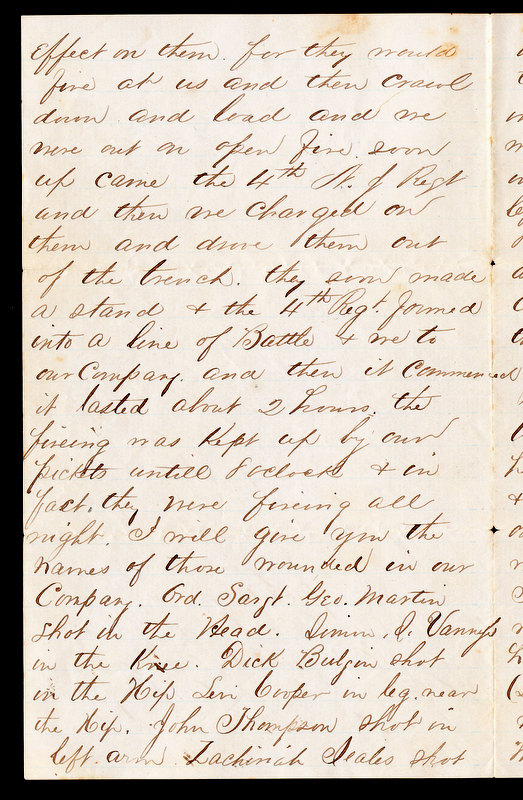 effect on them. for they would
fire at us and then crawl
down and load and we
were out on open fire soon
up came the 4th R. I Regt
and then we charged on
them and drove them out
of the trench. they soon made
a stand & the 4th Regt. formed
into a line of Battle & we to
our Company. and then it Commenced
it lasted about 2 hours. the
fireing was Kept up by our
pickets untill 8 oclock & in
fact, they were fireing all
night. I will give you the
names of those wounded in our
Company. Ord. Sargt. Geo. Martin
shot in the Head. J. Vanness
in the Knee. Dick Bulgin shot
in the Hip Levi Cooper in leg. near
the Hip. John Thompson shot in
left arm Zachiriah Seales shot